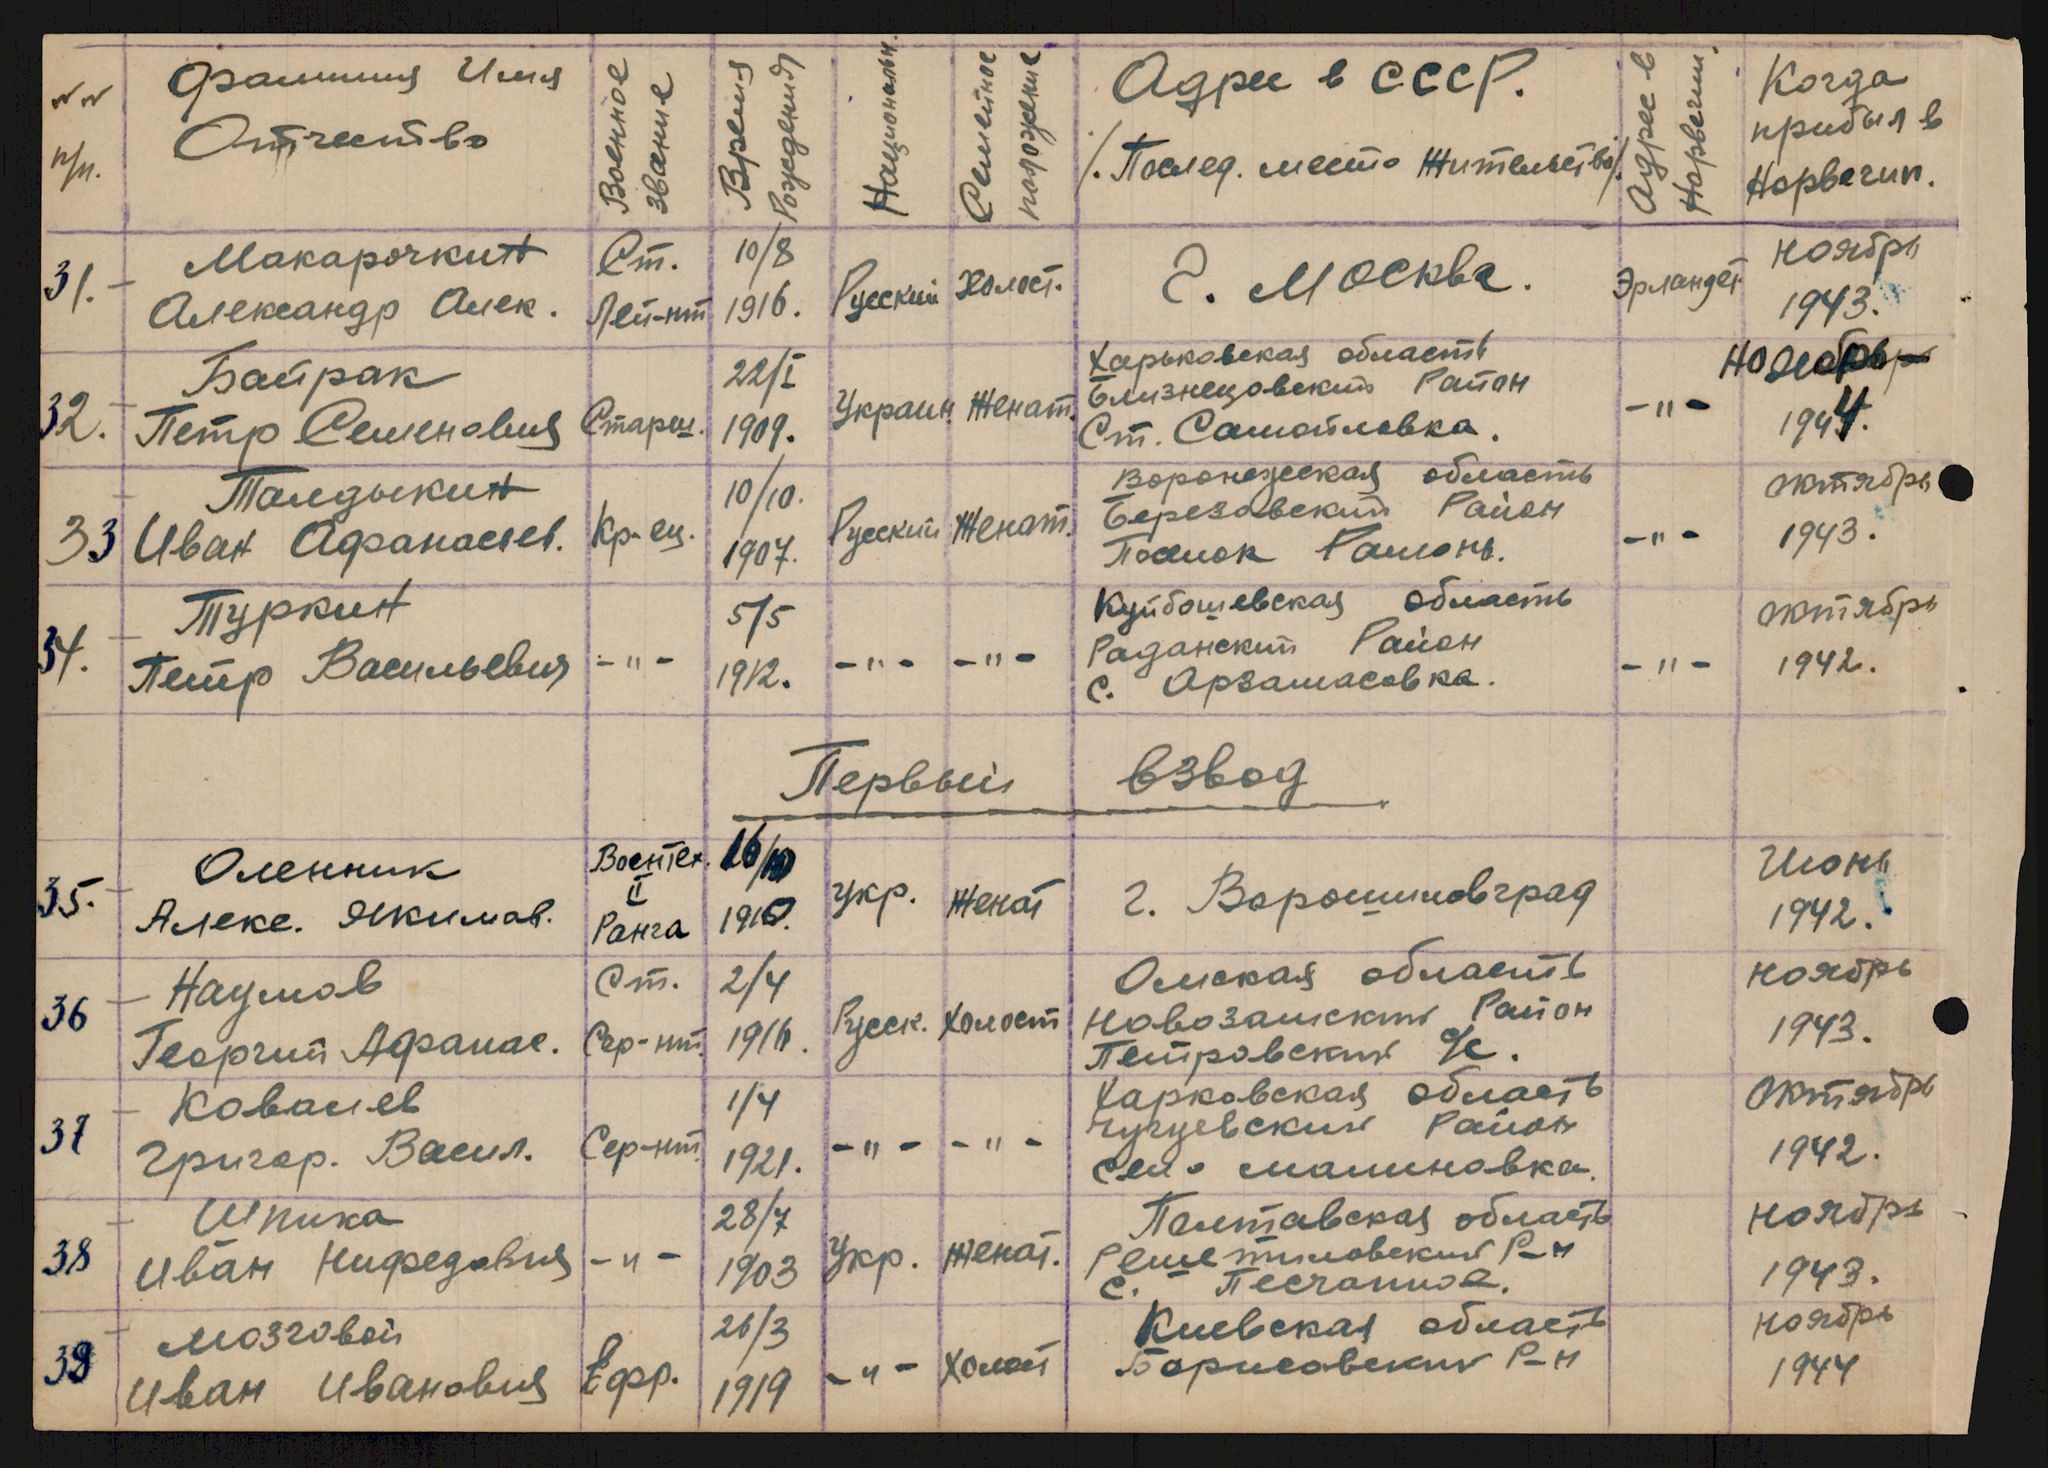 №№ п/п.
Фамилия Имя Отчество
Военное звание
Время Рождения
Национальн.
Семейное положение
Адрес в СССР.
/. Послед. место жительства/.
Адрес в Норвегии.
Когда прибыл в Норвегии.
31. Макарочкин Ст. 10/8 ноябрь
Александр Алек. Лей-нт 1916. Русский Холост. г. Москва. Эрландет 1943.
32. Байрак 22/I Харьковская область Ноябрь
Близнецовский Район
Петр Семенович Старш. 1909. Украин. Женат. Ст. Самойловка. -"- 1944.
33 Талдыкин 10/10. Воронежская область октябрь
Березовский Район
Иван Афанасьев. Кр-ец. 1907. Русский Женат. Поселок Рамонь. -"- 1943.
34. Туркин 5/5 Куйбошевская область октябрь
Раданский Район
Петр Васильевич -"- 1912. -"- -"- с. Арзамасовка. -"- 1942.
Первый взвод
35. Оленник Воентех. 16/10 Июнь
II
Алекс. Якимов. Ранга 1910. Укр. Женат г. Ворошиловград 1942.
36 Наумов Ст. 2/4 Омская область ноябрь
Новозамский Район
Георгий Афанас. Сер-нт. 1916. Русск. Холост Петровский с/с. 1943.
37 Ковалев 1/4 Харковская область октябрь
Чугуевский Район
Григор. Васил. Сер-нт. 1921. -"- -"- село Малиновка. 1942.
38 Шпика 28/7 Полтавская область ноябрь
Решетиловский Р-н
Иван Нифедович -"- 1903 Укр. Женат. с. Песчаное. 1943.
39 Мозговой 26/3 Киевская область ноябрь
Борисовский Р-н
Иван Иванович Ефр. 1919 -"- Холост 1944